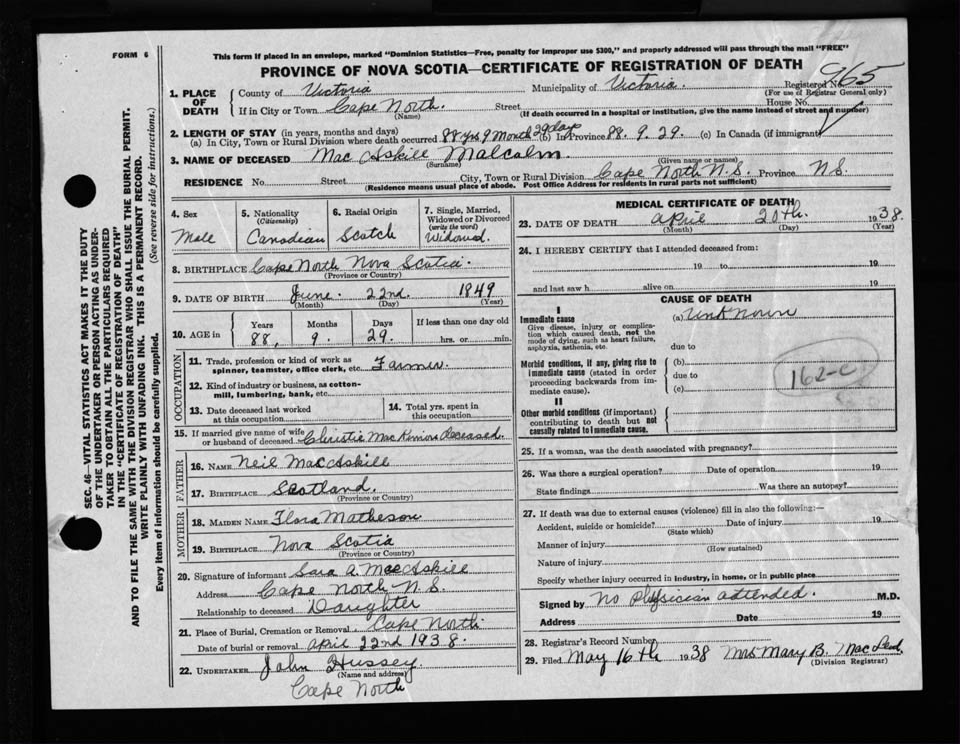 FORM 6
This form if placed in an envelope, marked "Dominion Statistics—Free, penalty for improper use $300," and properly addressed will pass through the mail "FREE"
PROVINCE OF NOVA SCOTIA—CERTIFICATE OF REGISTRATION OF DEATH
1. PLACE OF DEATH
County of Victoria Municipality of Victoria. Registered No. 965
(For use of Registrar General only)
If in City or Town Cape North. Street House No.
(Name) (If death occurred in a hospital or institution, give the name instead of street and number)
2. LENGTH OF STAY (in years, months and days)
(a) In City, Town or Rural Division where death occurred 88 yrs 9 Month 29 days (b) In Province 88. 9. 29. (c) In Canada (if immigrant)
3. NAME OF DECEASED Mac Askill Malcolm.
(Surname) (Given name or names)
RESIDENCE No. Street City, Town or Rural Division Cape North N.S. Province N.S.
(Residence means usual place of abode. Post Office Address for residents in rural parts not sufficient)
4. Sex
Male
5. Nationality
(Citizenship)
Canadian
6. Racial Origin
Scotch
7. Single, Married, Widowed or Divorced
(write the word)
Widowed.
8. BIRTHPLACE Cape North Nova Scotia.
(Province or Country)
9. DATE OF BIRTH June. 22nd. 1849
(Month) (Day) (Year)
10. AGE in
Years Months Days If less than one day old
88, 9. 29. hrs. or min.
OCCUPATION
11. Trade, profession or kind of work as
spinner, teamster, office clerk, etc. Farmer.
12. Kind of industry or business, as cotton-
mill, lumbering, bank, etc.
13. Date deceased last worked
at this occupation
14. Total yrs. spent in
this occupation
15. If married give name of wife
or husband of deceased Christie MacKinnon deceased.
FATHER
16. NAME Neil MacAskill
17. BIRTHPLACE Scotland.
(Province or Country)
MOTHER
18. MAIDEN NAME Flora Matheson
19. BIRTHPLACE Nova Scotia
(Province or Country)
20. Signature of informant Sara A. MacAskill
Address Cape North N.S.
Relationship to deceased Daughter
21. Place of Burial, Cremation or Removal Cape North.
Date of burial or removal April 22nd 1938.
22. UNDERTAKER John Hussey.
(Name and address)
Cape North
MEDICAL CERTIFICATE OF DEATH
23. DATE OF DEATH April 20th. 1938.
(Month) (Day) (Year)
24. I HEREBY CERTIFY that I attended deceased from:
19 to 19
and last saw h alive on 19
CAUSE OF DEATH
I
Immediate cause
Give disease, injury or complica-
tion which caused death, not the
mode of dying, such as heart failure,
asphyxia, asthenia, etc.
(a) Unknown
due to
Morbid conditions, if any, giving rise to
immediate cause (stated in order
proceeding backwards from im-
mediate cause).
(b)
due to
(c)
162-C
II
Other morbid conditions (if important)
contributing to death but not
causally related to immediate cause.
25. If a woman, was the death associated with pregnancy?
26. Was there a surgical operation? Date of operation 19
State findings Was there an autopsy?
27. If death was due to external causes (violence) fill in also the following:—
Accident, suicide or homicide? Date of injury 19
(State which)
Manner of injury
(How sustained)
Nature of injury
Specify whether injury occurred in industry, in home, or in public place
Signed by No Physician attended. M.D.
Address Date 19
28. Registrar's Record Number
29. Filed May 16th 1938 Mrs Mary B. MacLeod.
(Division Registrar)
SEC. 46—VITAL STATISTICS ACT MAKES IT THE DUTY
OF THE UNDERTAKER OR PERSON ACTING AS UNDER-
TAKER TO OBTAIN ALL THE PARTICULARS REQUIRED
IN THE "CERTIFICATE OF REGISTRATION OF DEATH"
AND TO FILE THE SAME WITH THE DIVISION REGISTRAR WHO SHALL ISSUE THE BURIAL PERMIT.
WRITE PLAINLY WITH UNFADING INK. THIS IS A PERMANENT RECORD.
(See reverse side for instructions.)
Every item of information should be carefully supplied.